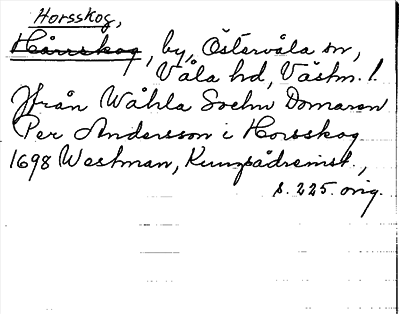 Horsskog,
Hårrskog, by, Östervåla sn,
Våla hd, Västm. l.
Ifrån Wåhla Sochn Domaren
Per Andersson i Horsskog
1698 Westman, Kungsådremst.,
s. 225. orig.